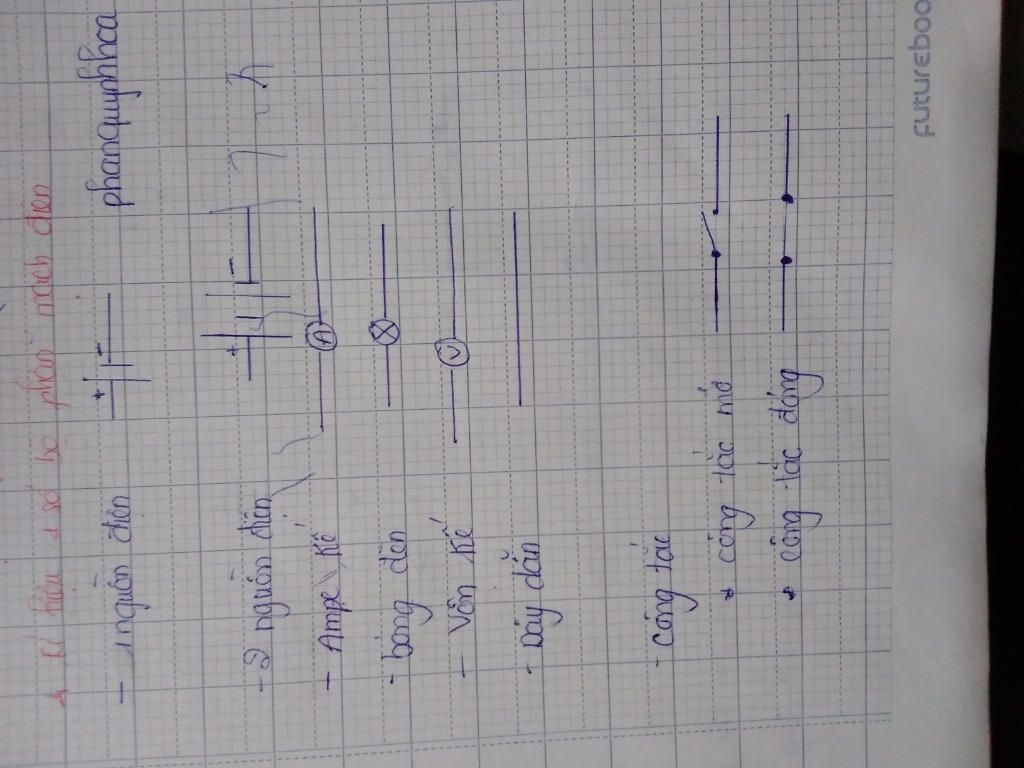 1 kí hiệu 1 số bộ phận mạch điện
- 1 nguồn điện + - phanquynhhoa
- 2 nguồn điện + -
- Ampe kế A
- bóng đèn
- Vôn kế V
- Dây dẫn
- công tắc
* công tắc mở
* công tắc đóng
futureboo